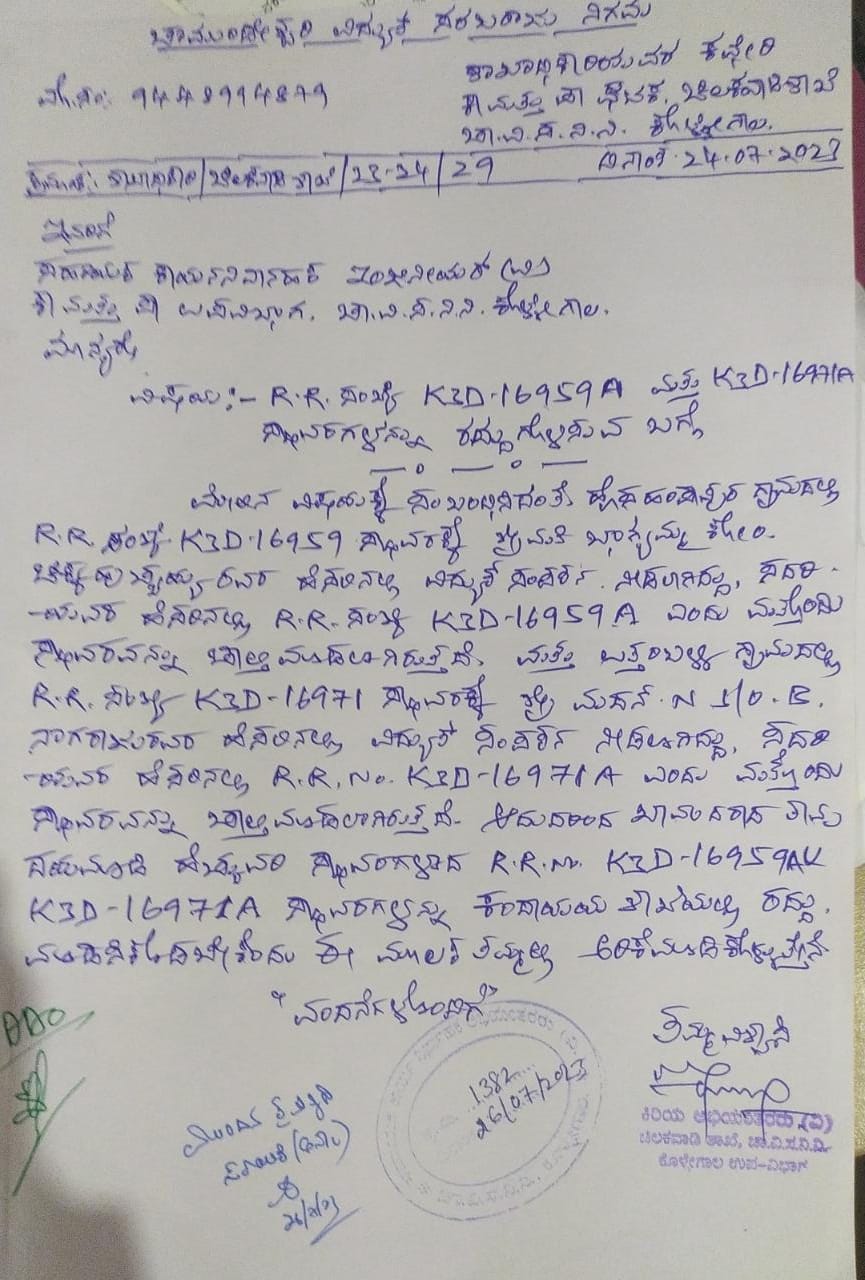 ಚಾಮುಂಡೇಶ್ವರಿ ವಿದ್ಯುತ್ ಸರಬರಾಜು ನಿಗಮ
ಶಾಖಾಧಿಕಾರಿಯವರ ಕಛೇರಿ
ಮೊ.ಸಂ: 9448994879
ಕಾ ಮತ್ತು ಪಾ ಘಟಕ, ಚಿಲಕವಾಡಿ ಶಾಖೆ
ಚಾ.ವಿ.ಸ.ನಿ.ನಿ. ಕೊಳ್ಳೇಗಾಲ.
ಕ್ರಮಾಂಕ: ಶಾಖಾಧಿಕಾರಿ/ಚಿಲಕವಾಡಿ ಶಾಖೆ/23-24/29 ದಿನಾಂಕ 24.07.2023
ಇವರಿಗೆ
ಸಹಾಯಕ ಕಾರ್ಯನಿರ್ವಾಹಕ ಇಂಜಿನೀಯರ್ (ವಿ)
ಕಾ ಮತ್ತು ಪಾ ಉಪವಿಭಾಗ. ಚಾ.ವಿ.ಸ.ನಿ.ನಿ. ಕೊಳ್ಳೇಗಾಲ.
ಮಾನ್ಯರೇ,
ವಿಷಯ:- R.R. ಸಂಖ್ಯೆ K3D-16959A ಮತ್ತು K3D-16971A
ಸ್ಥಾವರಗಳನ್ನು ರದ್ದುಗೊಳಿಸುವ ಬಗ್ಗೆ
— o — o —
ಮೇಲಿನ ವಿಷಯಕ್ಕೆ ಸಂಬಂಧಿಸಿದಂತೆ ಹೊಸಹಂಪಾಪುರ ಗ್ರಾಮದಲ್ಲಿ
R.R. ಸಂಖ್ಯೆ K3D-16959 ಸ್ಥಾವರಕ್ಕೆ ಶ್ರೀಮತಿ ಭಾಗ್ಯಮ್ಮ ಕೋಂ.
ರವರ ಹೆಸರಿನಲ್ಲಿ ವಿದ್ಯುತ್ ಸಂಪರ್ಕ ನೀಡಲಾಗಿದ್ದು, ಸದರಿ-
-ಯವರ ಹೆಸರಿನಲ್ಲಿ R.R. ಸಂಖ್ಯೆ K3D-16959A ಎಂದು ಮತ್ತೊಂದು
ಸ್ಥಾವರವನ್ನು ಚಾಲ್ತಿ ಮಾಡಲಾಗಿರುತ್ತದೆ. ಮತ್ತು ಉತ್ತಂಬಳ್ಳಿ ಗ್ರಾಮದಲ್ಲಿ
R.R. ಸಂಖ್ಯೆ K3D-16971 ಸ್ಥಾವರಕ್ಕೆ ಶ್ರೀ ಮದನ್. N S/O. B.
ನಾಗರಾಜುರವರ ಹೆಸರಿನಲ್ಲಿ ವಿದ್ಯುತ್ ಸಂಪರ್ಕ ನೀಡಲಾಗಿದ್ದು, ಸದರಿ
-ಯವರ ಹೆಸರಿನಲ್ಲಿ R.R. No. K3D-16971A ಎಂದು ಮತ್ತೊಂದು
ಸ್ಥಾವರವನ್ನು ಚಾಲ್ತಿ ಮಾಡಲಾಗಿರುತ್ತದೆ. ಆದುದರಿಂದ ಖಾವಂದರಾದ ತಾವು
ದಯಮಾಡಿ ಹೆಚ್ಚುವರಿ ಸ್ಥಾವರಗಳಾದ R.R.No. K3D-16959A &
K3D-16971A ಸ್ಥಾವರಗಳನ್ನು ಕಂದಾಯ ಶಾಖೆಯಲ್ಲಿ ರದ್ದು
ಮಾಡಿಸಿಕೊಡಬೇಕೆಂದು ಈ ಮೂಲಕ ತಮ್ಮಲ್ಲಿ ಅರಿಕೆ ಮಾಡಿಕೊಳ್ಳುತ್ತೇನೆ
"ವಂದನೆಗಳೊಂದಿಗೆ"
ತಮ್ಮ ವಿಶ್ವಾಸಿ
1382
26/07/2023
ಮುಂದಿನ ಕ್ರಮಕ್ಕಾಗಿ
26/7/23
ಕಿರಿಯ ಅಭಿಯಂತರರು (ವಿ)
ಚಿಲಕವಾಡಿ ಶಾಖೆ, ಚಾ.ವಿ.ಸ.ನಿ.ನಿ.
ಕೊಳ್ಳೇಗಾಲ ಉಪ-ವಿಭಾಗ